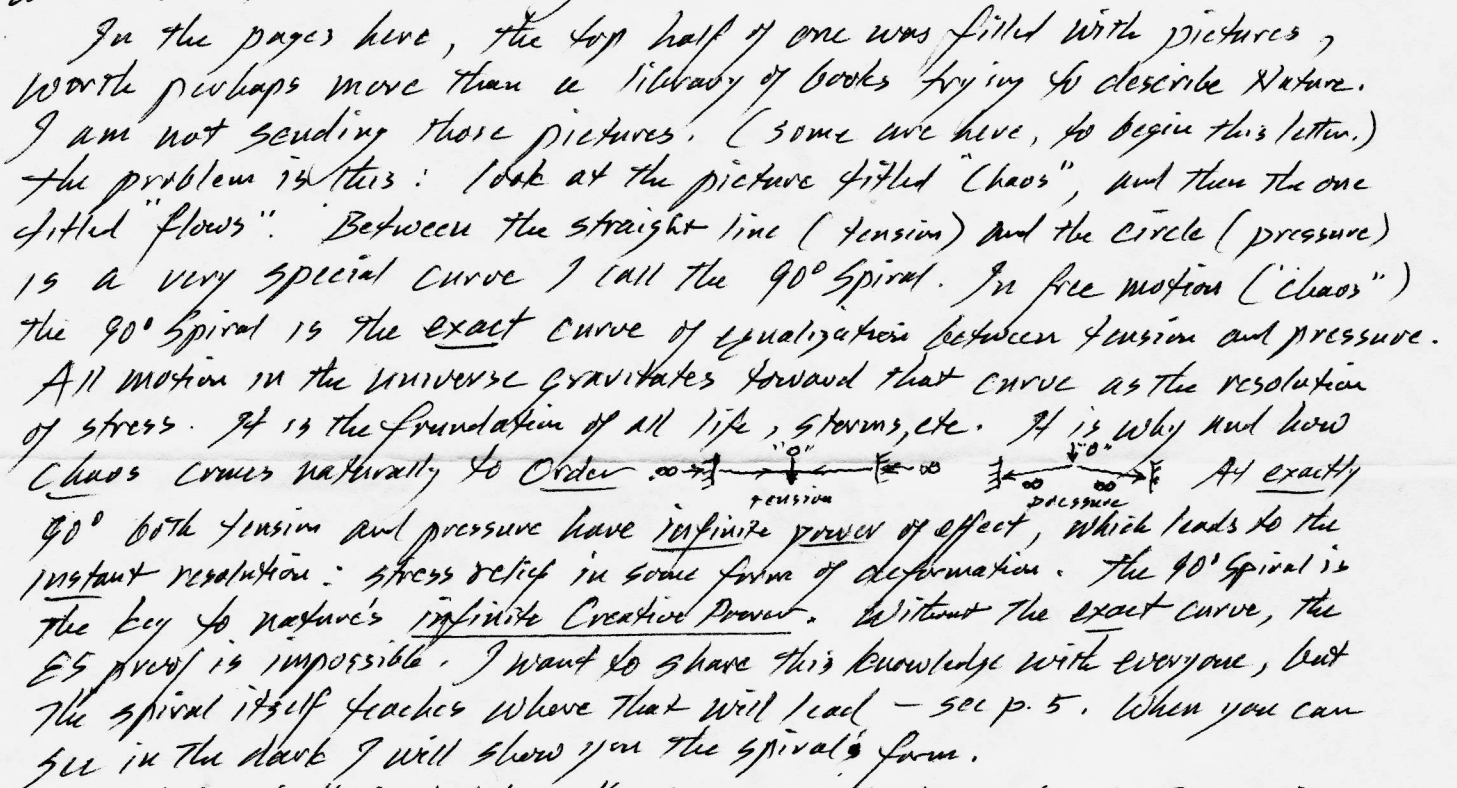 In the pages here, the top half of one was filled with pictures,
worth perhaps more than a library of books trying to describe Nature.
I am not sending those pictures. (some are here, to begin this letter.)
the problem is this: look at the picture titled "Chaos", and then the one
titled "flows". Between the straight line (tension) and the circle (pressure)
is a very special curve I call the 90° Spiral. In free motion ("chaos")
the 90° Spiral is the exact curve of equalization between tension and pressure.
All motion in the universe gravitates toward that curve as the resolution
of stress. It is the foundation of all life, storms, etc. It is why and how
Chaos comes naturally to Order. ∞ "0" ∞ tension "0" ∞ ∞ pressure At exactly
90° both tension and pressure have infinite power of effect, which leads to the
instant resolution: stress relief in some form of deformation. The 90° Spiral is
the key to nature's infinite Creative Power. Without the exact curve, the
ES proof is impossible. I want to share this knowledge with everyone, but
the spiral itself teaches where that will lead – see p. 5. When you can
see in the dark I will show you the spiral's form.